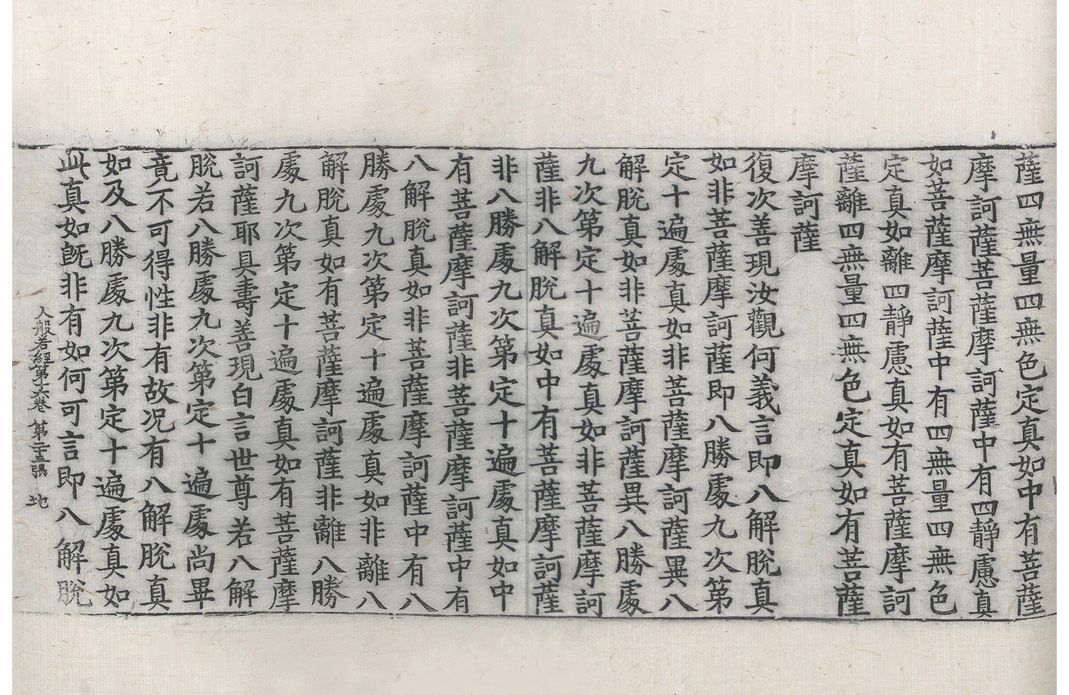 薩四無量四無色定真如中有菩薩
摩訶薩菩薩摩訶薩中有四靜慮真
如菩薩摩訶薩中有四無量四無色
定真如離四靜慮真如有菩薩摩訶
薩離四無量四無色定真如有菩薩
摩訶薩
復次善現汝觀何義言即八解脫真
如非菩薩摩訶薩即八勝處九次第
定十遍處真如非菩薩摩訶薩異八
解脫真如非菩薩摩訶薩異八勝處
九次第定十遍處真如非菩薩摩訶
薩非八解脫真如中有菩薩摩訶薩
非八勝處九次第定十遍處真如中
有菩薩摩訶薩非菩薩摩訶薩中有
八解脫真如非菩薩摩訶薩中有八
勝處九次第定十遍處真如非離八
解脫真如有菩薩摩訶薩非離八勝
處九次第定十遍處真如有菩薩摩
訶薩耶具壽善現白言世尊若八解
脫若八勝處九次第定十遍處尚畢
竟不可得性非有故况有八解脫真
如及八勝處九次第定十遍處真如
此真如旣非有如何可言即八解脫
般若經第 卷 第 張 地